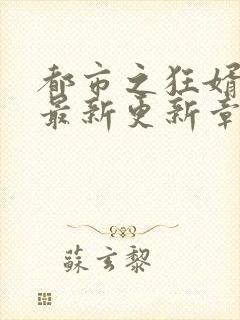 都市之狂婿
最新更新章
蘇玄黎